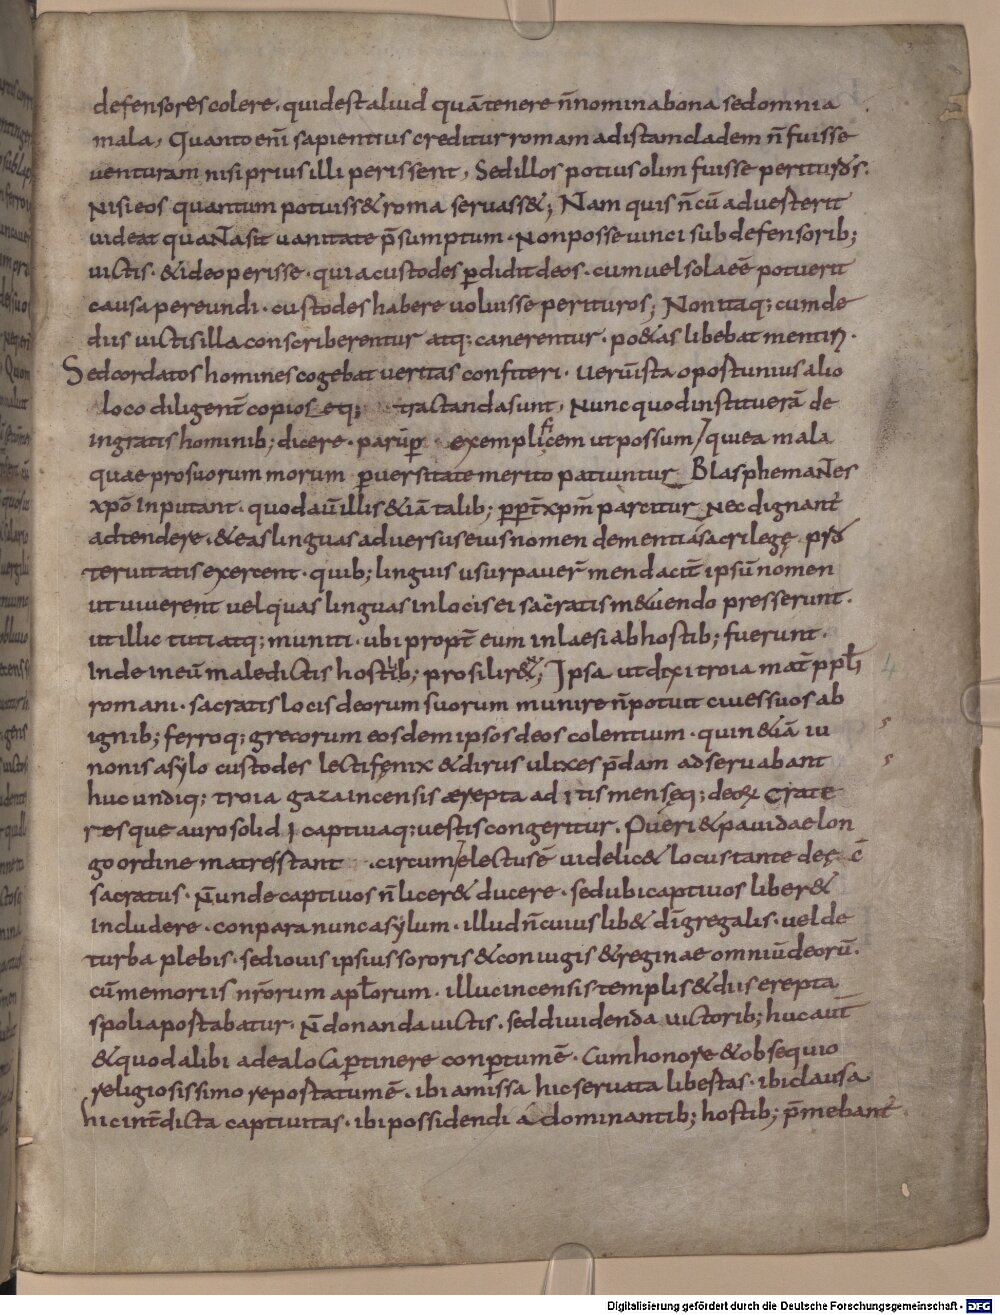 defensores colere. quid est aliud quā tenere n̄ nomina bona sed omnia
mala, Quanto enī sapientius creditur romam ad istam cladem n̄ fuisse
venturam nisi prius illi perissent, Sed illos potius olim fuisse perituros.
Nisi eos quantum potuiss& roma servass&; Nam quis n̄ cū adverterit
videat quanta sit vanitate p̄sumptum. Non posse vinci sub defensorib;
victis. & ideo perisse. quia custodes p̱didit deos. cum vel sola eē potuerit
causa pereundi. custodes habere voluisse perituros; Non itaq; cum de
diis victis illa conscriberentur atq; canerentur. po&as libebat mentiri.
Sed cordatos homines cogebat veritas confiteri. Verū ista oportunius alio
loco diligent̄ copioseq; tractanda sunt, Nunc quod instituerā de
ingratis hominib; dicere. parūp̱ explicem ut possum / qui ea mala
quae pro suorum morum p̱versitate merito patiuntur Blasphemantes
xp̄o inputant. quod aū illis &iā talib; pp̄t xp̄m parcitur Nec dignant̄
adtendere. & eas linguas adversus eius nomen dementiā sacrilegę. pro
tervitatis exercent. quib; linguis usurpaver̄ mendaciт̄ ipsū nomen
ut viverent vel quas linguas in locis ei sacratis m&uendo presserunt.
ut illic tuti atq; muniti. ubi propt̄ eum inlaesi ab hostib; fuerunt.
Inde in eū maledictis hostilib; prosilir&; Ipsa ut dixi troia mat̄ ppłi
romani. sacratis locis deorum suorum munire n̄ potuit cives suos ab
ignib; ferroq; grecorum eosdem ipsos deos colentium. quin &iā iu
nonis asylo custodes lecti fęnix & dirus ulixes p̄dam adservabant
huc undiq; troia gaza incensis ęrepta aditis mensęq; deorum Crate
resque auro solidi captivaq; vestis congeritur. Pueri & pavidae lon
go ordine matres stant circum / electus ē videlic& locus tante deę. c̄
sacratus. n̄ unde captivos n̄ licer& ducere. sed ubi captivos liber&
includere. conpara nunc asylum. illud n̄ cuius lib& dī gregalis. vel de
turba plebis. sed iovis ipsius sororis & coniugis & reginae omniū deorū.
cū memoriis nr̄orum apłorum. illuc incensis templis & diis erepta
spolia portabatur. n̄ donanda victis. sed dividenda victorib; huc aūt
& quod alibi ad ea loca p̱tinere conp̱tum ē. Cum honore & obsequio
religiosissimo reportatum ē. ibi amissa hic servata libertas. ibi clausa
hic int̄dicta captivitas. ibi possidendi a dominantib; hostib; p̄mebant̄
Digitalisierung gefördert durch die Deutsche Forschungsgemeinschaft - DFG